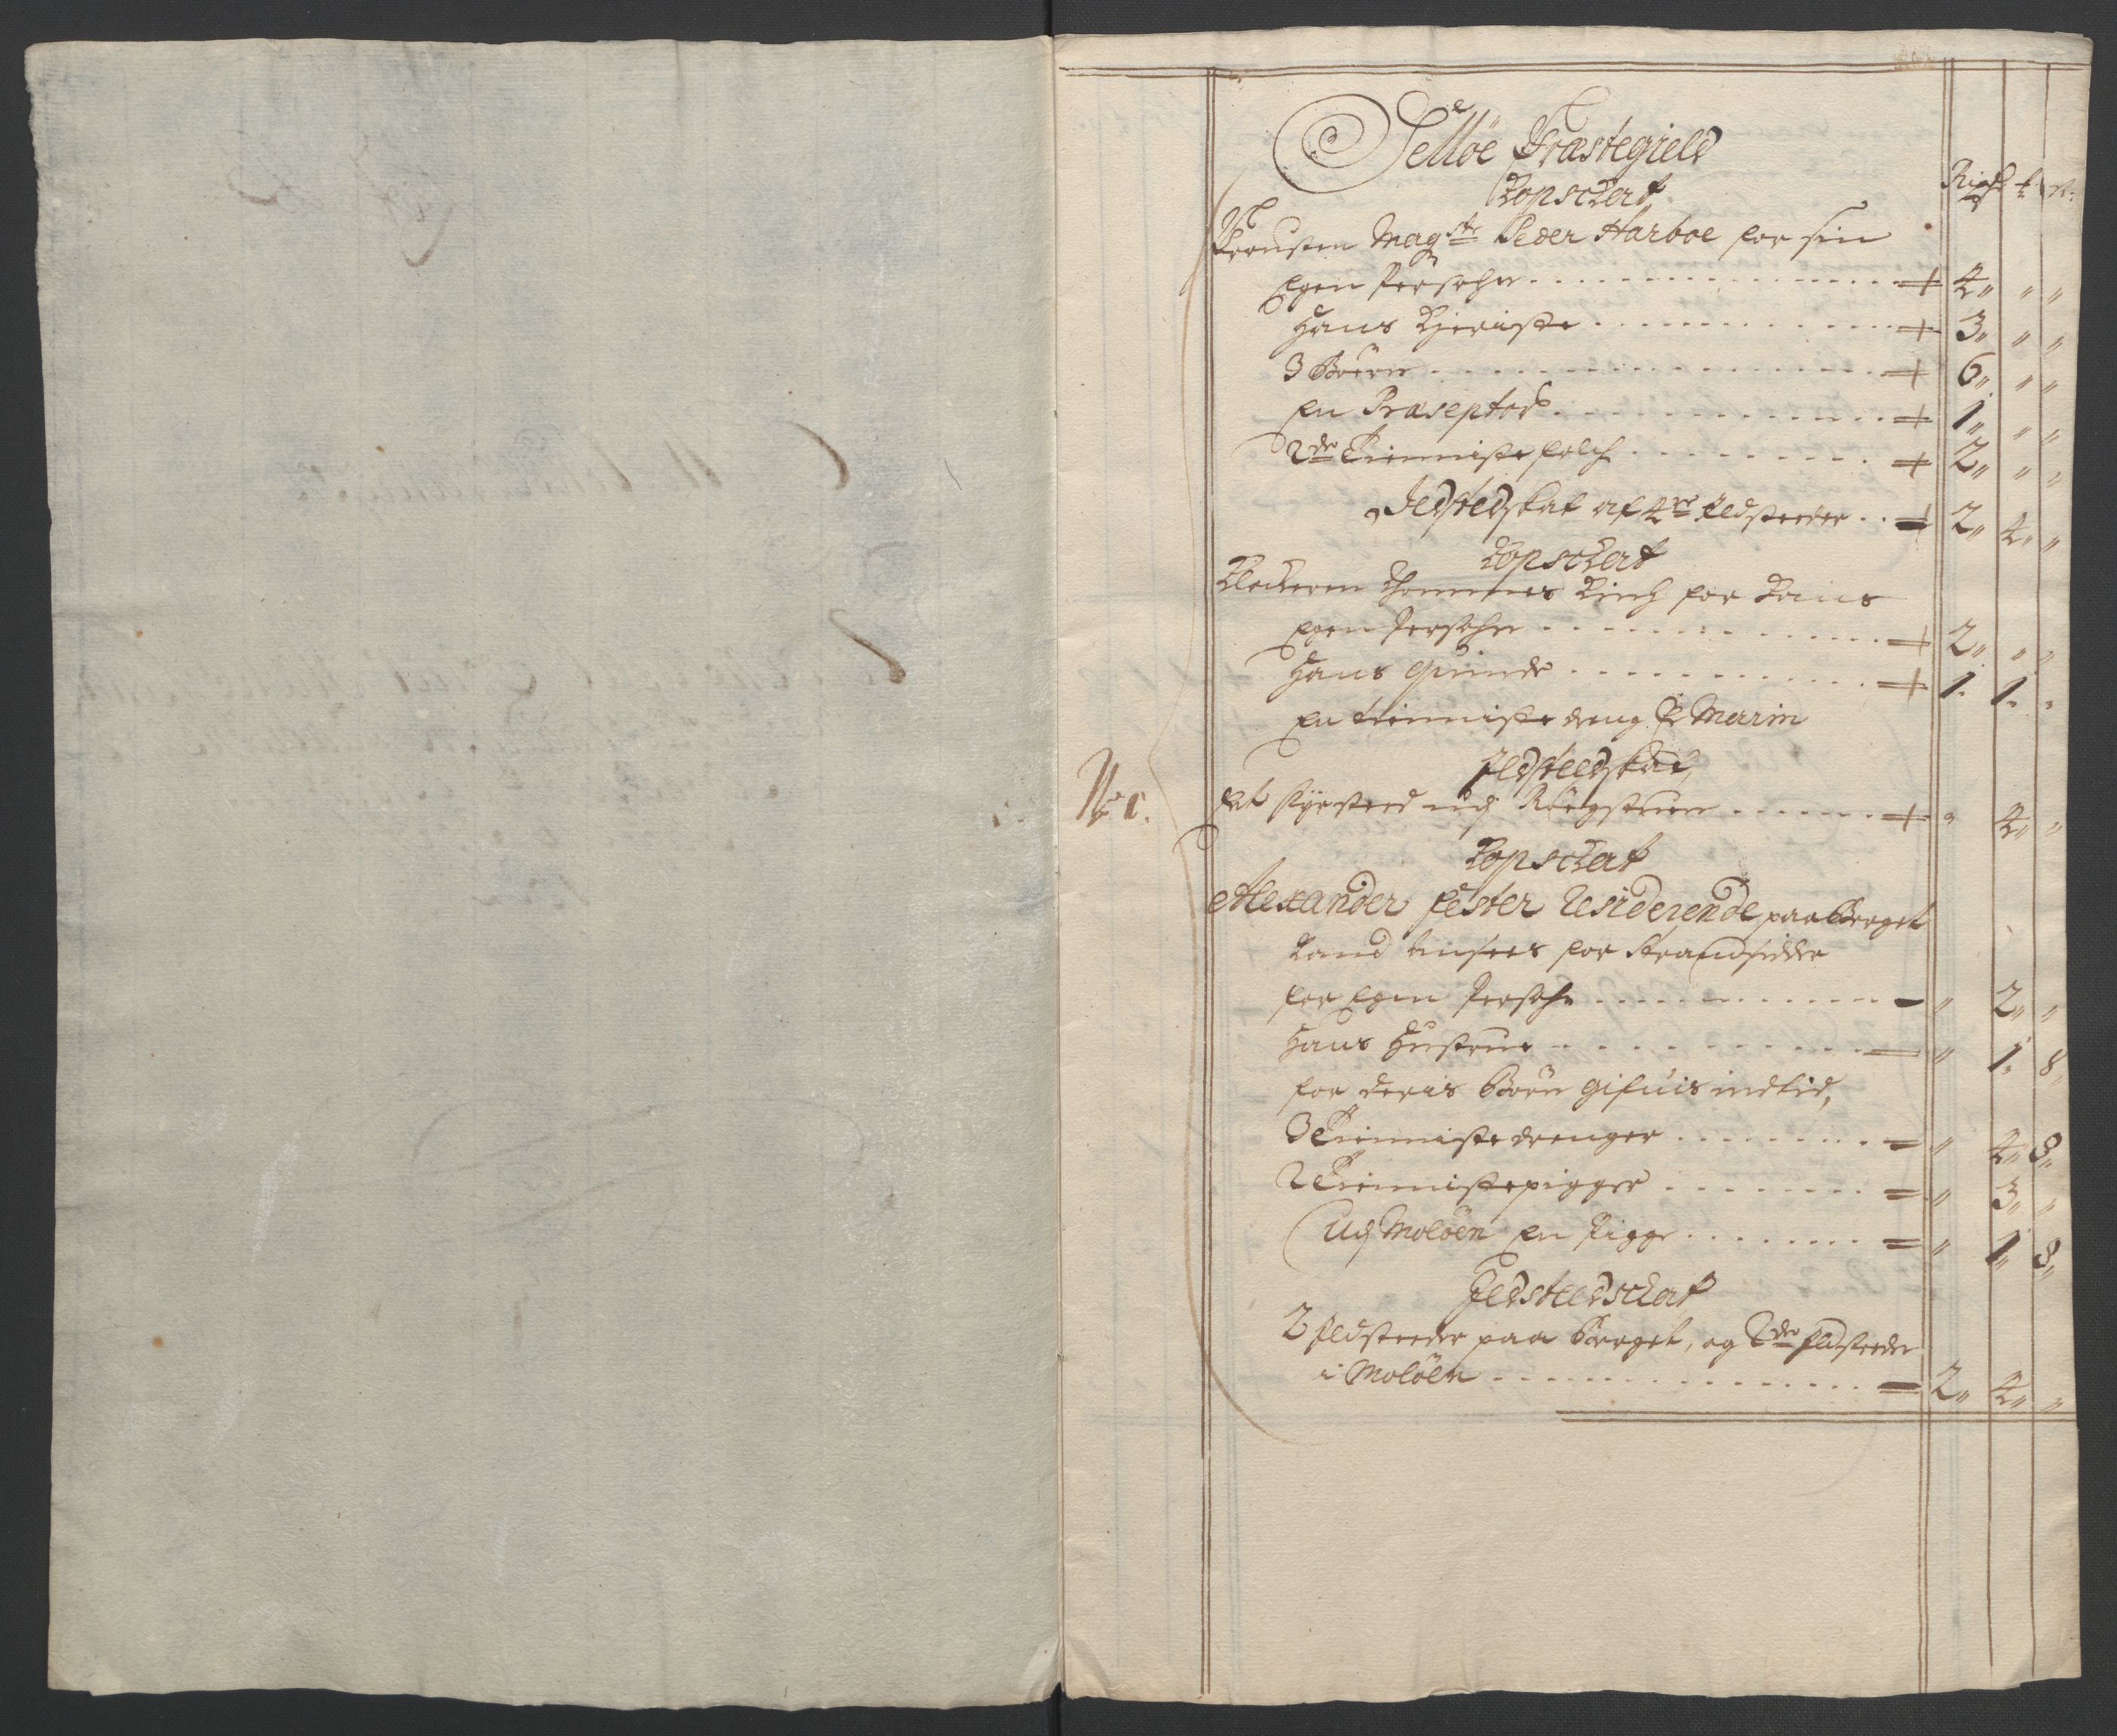 Selløe Præstegield
Kopschat
Rigsd. t. s.
Prousten Magstr Peder Harboe for sin
Egen Persohn + 4 " "
Hans Kieriste + 3 " "
3 Börn + 6 " "
En Præseptor + 1 " "
2de Tienniste folch + 2 " "
Ildstedskat af 4re Ildsteeder 2 4 "
Kopschat
Klockeren Thommes Kinch for Hans
Egen Persohn + 2 " "
Hans Quinde + 1 1 "
En tienniste dreng er Marin
Ildsteedskat,
No 1.
det Fyrsted udj Røgstuen + " 4 "
Kopschat
Alexander Fester Residerende paa Berget
Land ansees for Strandsidder
for Egen Persohn " 2 "
Hans Hustrue " 1 8
for deris Börn gifuis indtid,
3 Tienniste drenger " 4 8
2 Tiennistepigger " 3 "
Udj Molöen En Pigge " 1 8
Ildsteedschat
2 Ildsteeder paa Berget, og 2de Ildsteeder
i Molöen 2 4 "